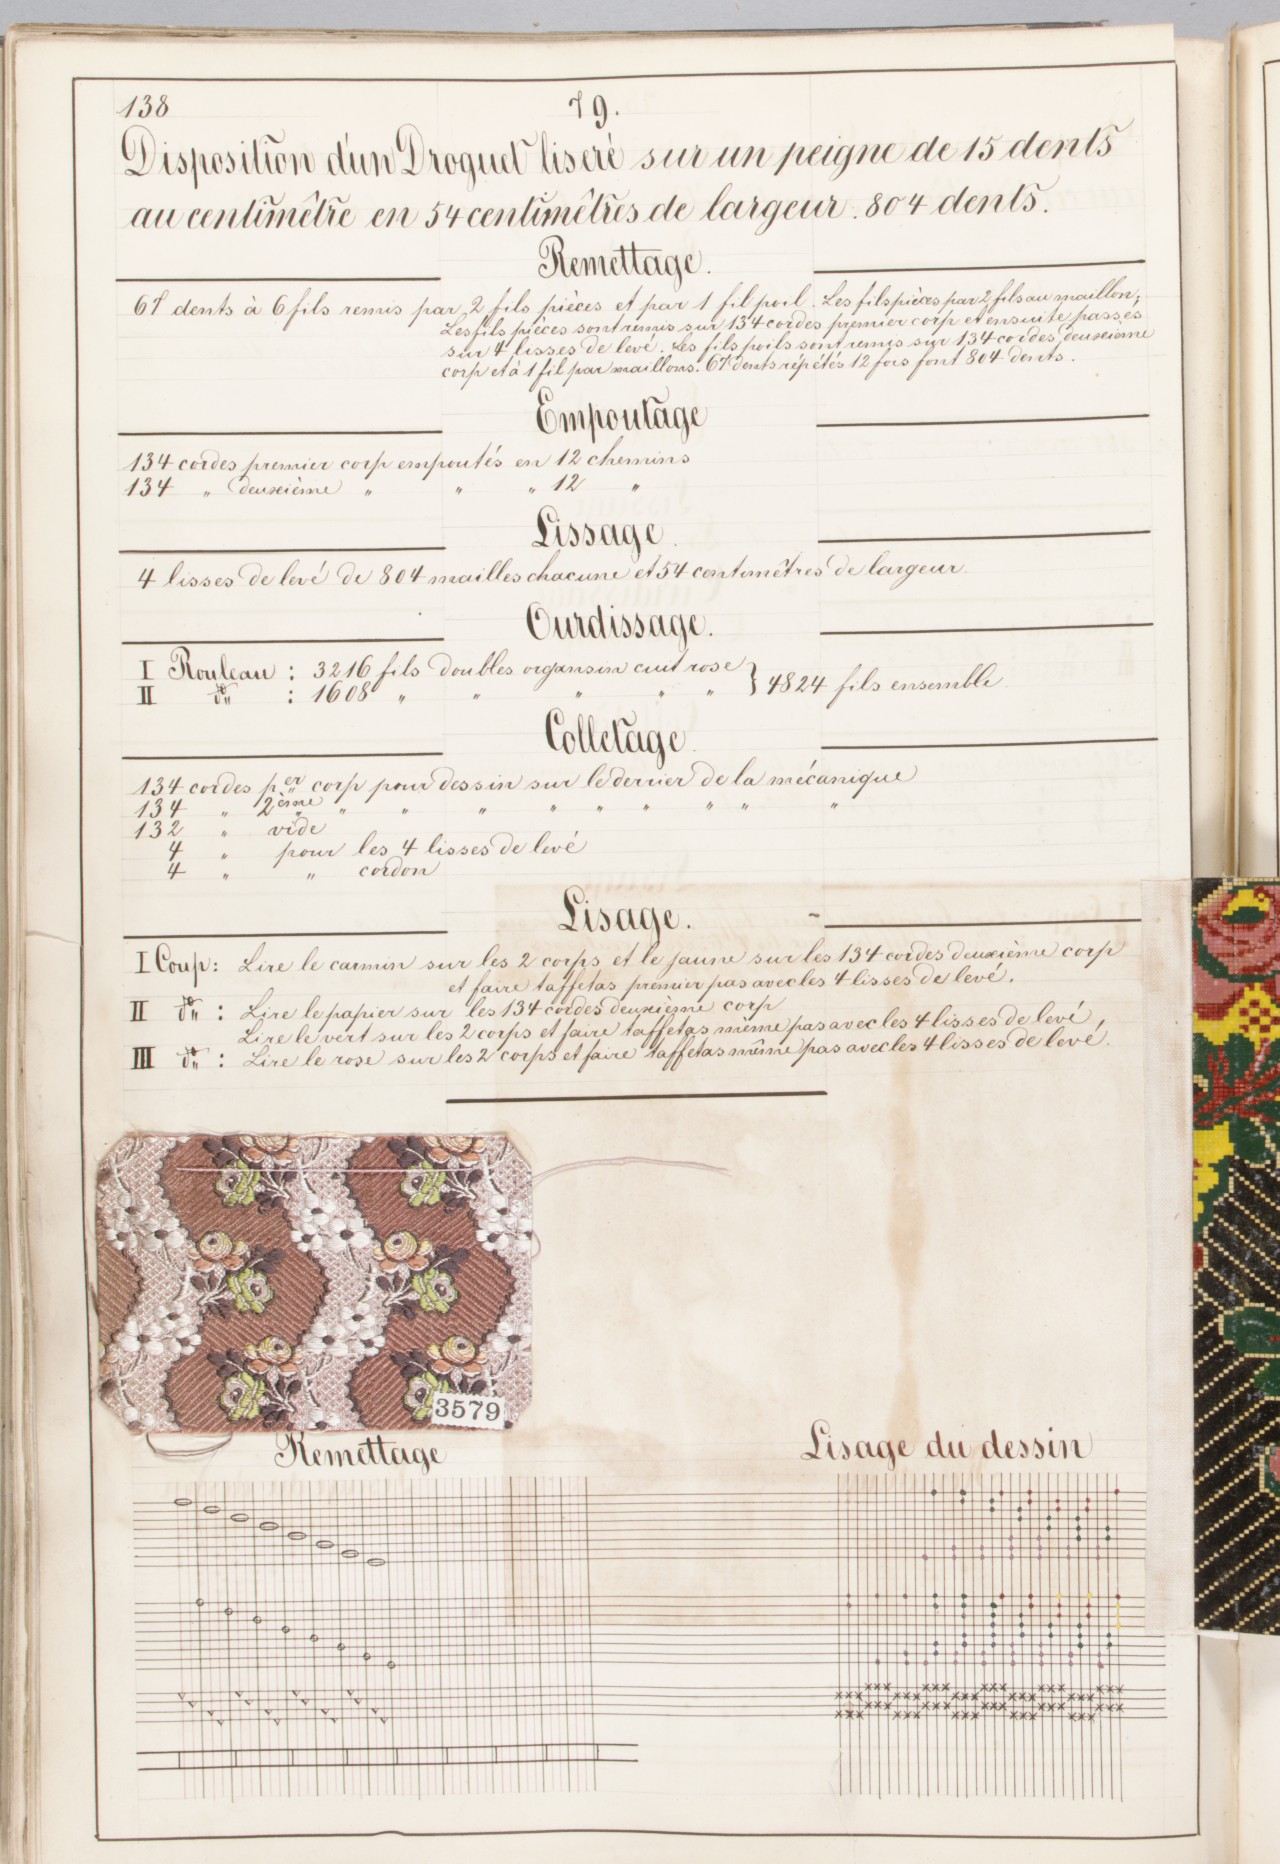 138
79.
Disposition d'un Droguet liseré sur un peigne de 15 dents
au centimêtre en 54 centimêtres de largeur. 804 dents.
Remettage.
67 dents à 6 fils remis par 2 fils pièces et par 1 fil poil. Les fils pièces par 2 fils au maillon;
Les fils pièces sont remis sur 134 cordes premier corp et ensuite passés
sur 4 lisses de levé. Les fils poils sont remis sur 134 cordes deuxième
corp et à 1 fil par maillons. 67 dents répétés 12 fois font 804 dents.
Empoutage
134 cordes premier corp empoutés en 12 chemins
134 " deuxième " " " 12 "
Lissage.
4 lisses de levé de 804 mailles chacune et 54 centimêtres de largeur
Ourdissage.
I Rouleau : 3216 fils doubles organsin cuit rose } 4824 fils ensemble
II do" : 1608 " " " " "
Colletage
134 cordes per corp pour dessin sur le derrier de la mécanique
134 " 2ème " " " " " " " " "
132 " vide
4 " pour les 4 lisses de levé
4 " " cordon
Lisage.
I Coup: Lire le carmin sur les 2 corps et le jaune sur les 134 cordes deuxième corp
et faire taffetas premier pas avec les 4 lisses de levé.
II do" : Lire le papier sur les 134 cordes deuxième corp
Lire le vert sur les 2 corps et faire taffetas même pas avec les 4 lisses de levé,
III do" : Lire le rose sur les 2 corps et faire taffetas même pas avec les 4 lisses de levé.
3579
Remettage
Lisage du dessin